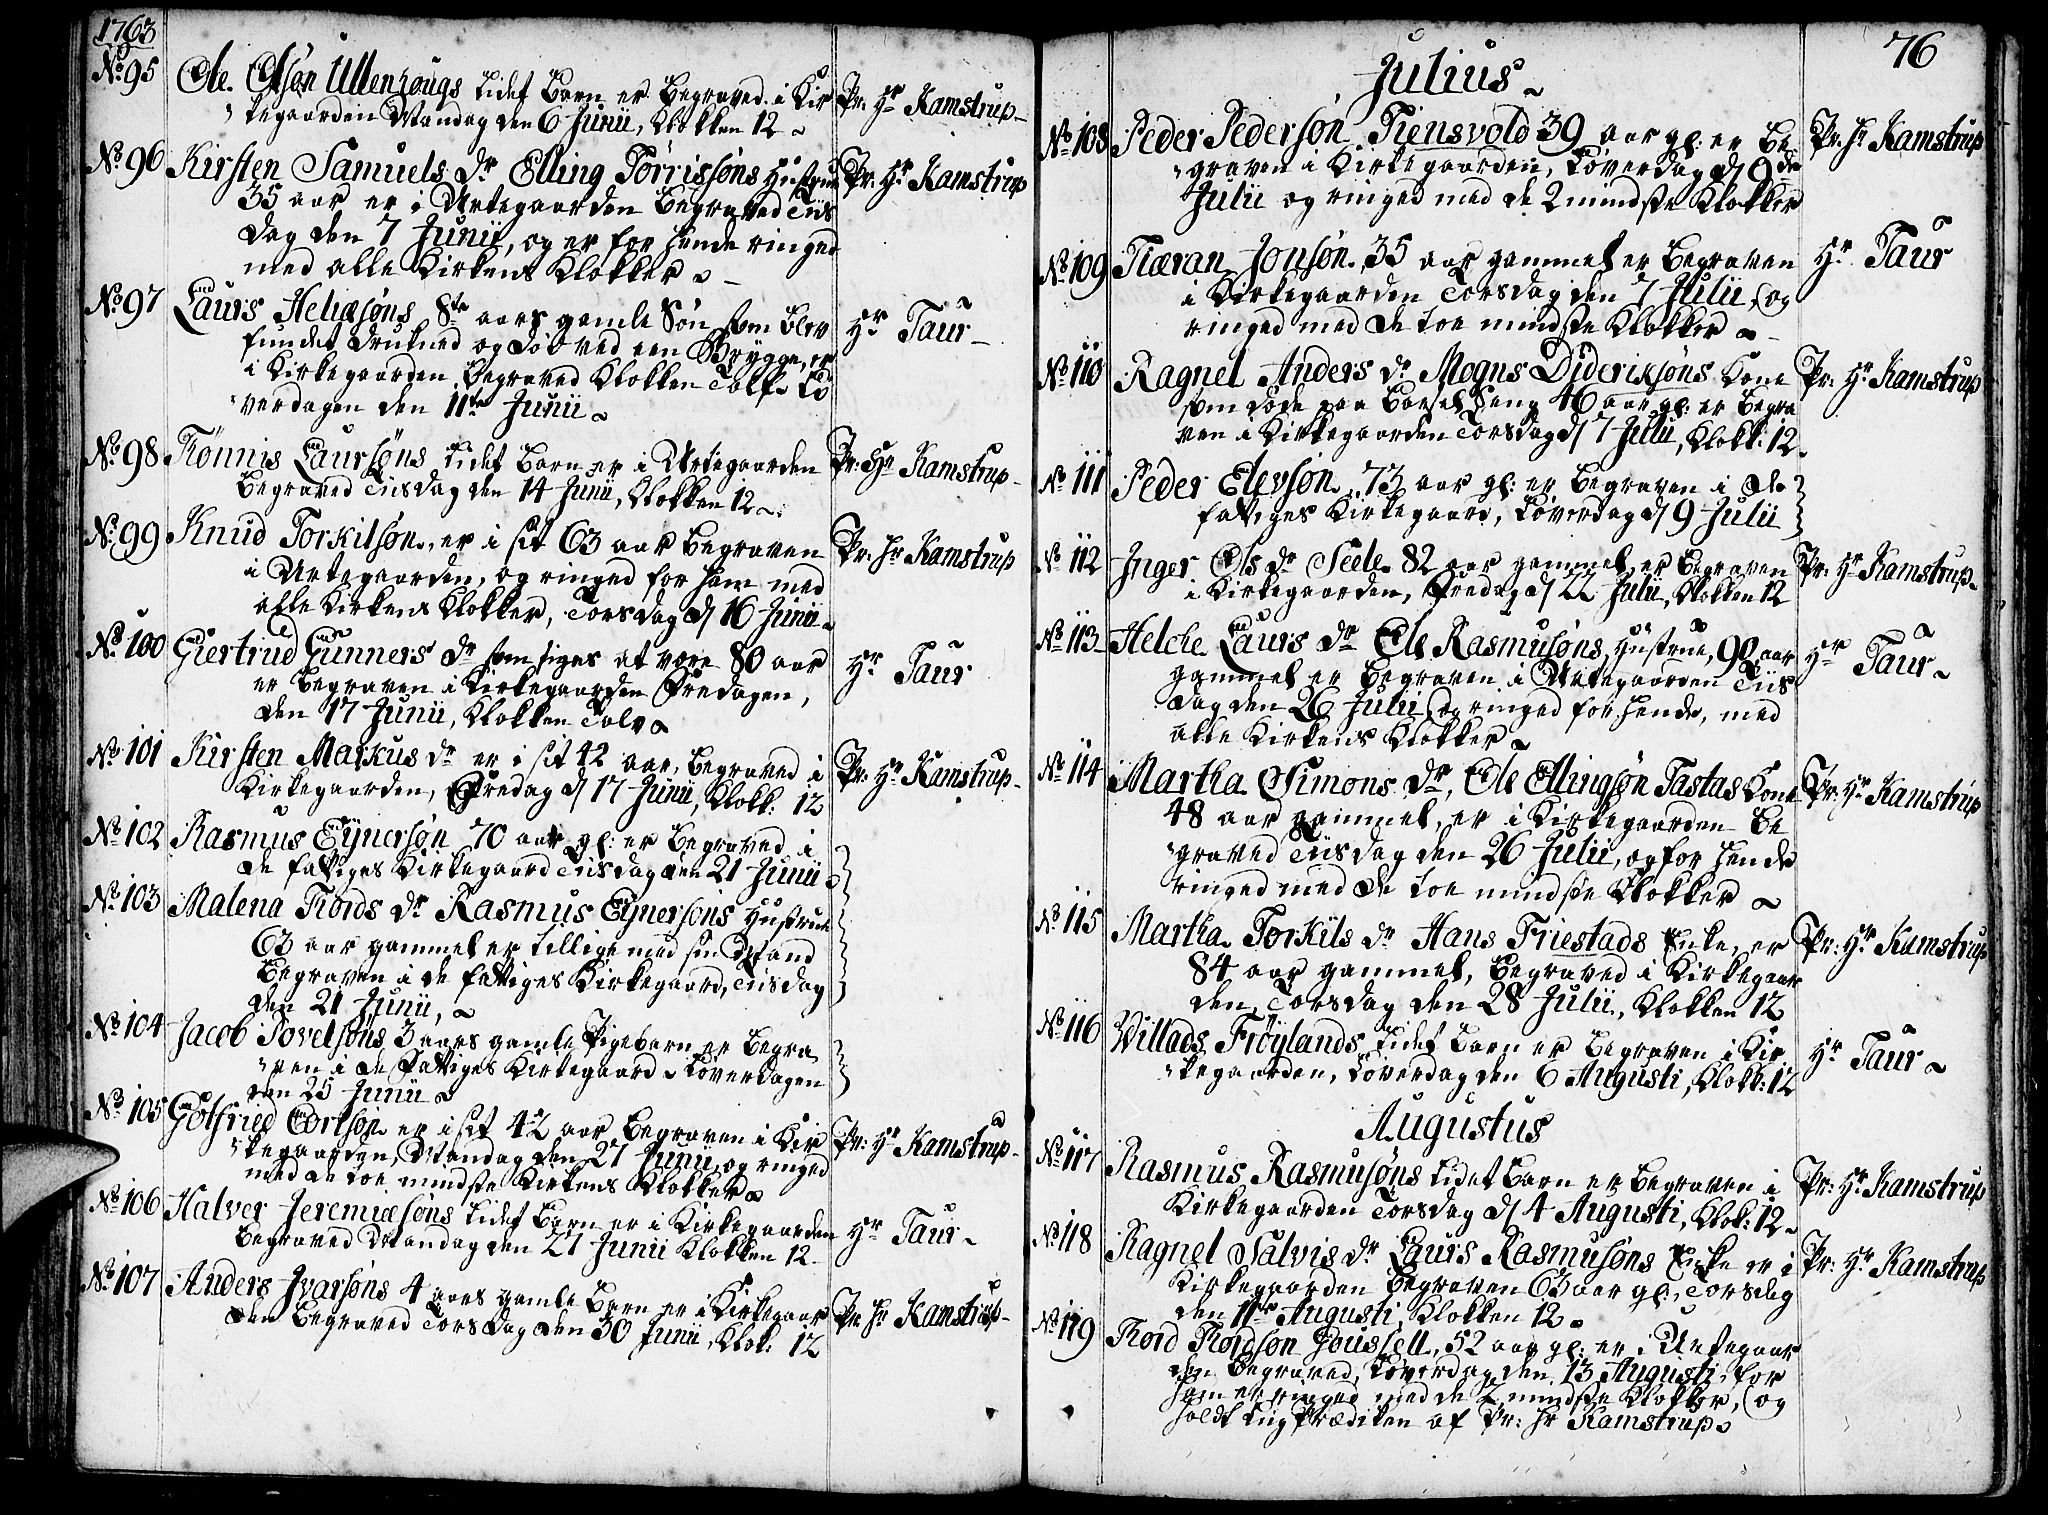 1763
No 95 Ole Olsøn Ullenhougs lidet Barn er begraved i Kir Pr: Hr Kamstrup
kegaarden Mandag den 6 Junii, Klokken 12
No 96 Kirsten Samuels Dr Elling Tørrissøns Hustrue Pr: Hr Kamstrup
35 aar er i Urtegaarden begraved Tiis
dag den 7 Junii, og er for hende ringed
med alle Kirkens Klokker
No 97 Laurs Heliæsøns 8te aars gamle Søn som blev Hr Taur
fundet drukned og død ved een Brygge, er
i Kirkegaarden begraved Klokken Tolf Lø
verdagen den 11te Junii
No 98 Tønnis Laursøns lidet Barn er i Urtegaarden Pr: Hr Kamstrup
begraved Tiisdag den 14 Junii, Klokken 12
No 99 Knud Torkilsøn, er i sit 63 aar begraven Pr: Hr Kamstrup
i Urtegaarden, og ringed for ham med
alle Kirkens Klokker, Torsdag d 16 Junii
No 100 Giertrud Gunners Dr som siges at være 80 aar Hr Taur
er begraven i Kirkegaarden Fredagen,
den 17 Junii, Klokken Tolv
No 101 Kirsten Markus Dr er i sit 42 aar, begraved i Pr: Hr Kamstrup
Kirkegaarden, Fredag d 17 Junii, Klokk: 12
No 102 Rasmus Eynersøn 70 aar gl: er begraved i
de fattiges Kirkegaard Tiisdag den 21 Junii
No 103 Malena Tiords Dr Rasmus Eynersøns Hustrue
63 aar gammel er tillige med sin Mand
begraven i de fattiges Kirkegaard, Tiisdag
den 21 Junii,
No 104 Jacob Povelsøns 3 aars gamle Pigebarn er begra
ven i de Fattiges Kirkegaard Løverdagen
den 25 Junii
No 105 Gotfried Cortsøn er i sit 42 aar begraven i Kir Pr: Hr Kamstrup
kegaarden, Mandag den 27 Junii og ringed
med de toe mindste Kirkens Klokker
No 106 Halver Jeremiæsøns lidet Barn er i Kirkegaarden Hr Taur
begraved Mandag den 27 Junii Klokken 12
No 107 Anders Ivarsøns 4 aars gamle Barn er i Kirkegaar Pr: Hr Kamstrup
den begraved Torsdag den 30 Junii, Klok: 12
76
Julius
No 108 Peder Pedersøn Tiensvold 39 aar gl: er be Pr: Hr Kamstrup
graven i Kirkegaarden, Løverdag d 9de
Julii og ringed med de 2 mindste Klokker
No 109 Tiæran Jonsøn, 35 aar gammel er begraven Hr Taur
i Kirkegaarden Torsdag den 7 Julii, og
ringed med de toe mindste Klokker
No 110 Ragnel Anders Dr Mogns Dideriksøns Kone Pr: Hr Kamstrup
som døde paa Barsel Seng 46 aar gl: er begra
ven i Kirkegaarden Torsdag d 7 Julii, Klokk: 12
No 111 Peder Elevsøn, 73 aar gl: er begraven i de
fattiges Kirkegaard, Løverdag d 9 Julii
No 112 Inger Ols Dr Seele 82 aar gammel er begraven Pr: Hr Kamstrup
i Kirkegaarden, Fredag d 22 Julii, Klokken 12
No 113 Helche Laurs Dr Ole Rasmusøns Hustrue, 90 aar Hr Taur
gammel er begraven i Urtegaarden Tiis
dag den 26 Julii, og ringed for hende, med
alle Kirkens Klokker
No 114 Martha Simons Dr, Ole Ellingsøn Tastas Kone Pr: Hr Kamstrup
48 aar gammel, er i Kirkegaarden be
graved Tiisdag den 26 Julii, og for hende
ringed med de toe mindste Klokker
No 115 Martha Torkils Dr Hans Friestads Enke, er Pr: Hr Kamstrup
84 aar gammel, begraved i Kirkegaar
den, Torsdag den 28 Julii, Klokken 12
No 116 Willads Frøylands lidet Barn er begraven i Kir Hr Taur
kegaarden, Løverdag den 6 Augusti, Klokk: 12
Augustus
No 117 Rasmus Rasmusøns lidet Barn er begraven i Pr: Hr Kamstrup
Kirkegaarden Torsdag d 4 Augusti, Klok: 12
No 118 Ragnel Salvis Dr Laurs Rasmusøns Enke er i Pr: Hr Kamstrup
Kirkegaarden begraven 63 aar gl, Torsdag
den 11te Augusti, Klokken 12
No 119 Tiord Tiordsøn Goussell, 52 aar gl: er i Urtegaar
den begraved, Løverdag den 13 Augusti, for
ham er ringed med de 2 mindste Klokker, og
holdt Liig Prædiken af Pr: Hr Kamstrup